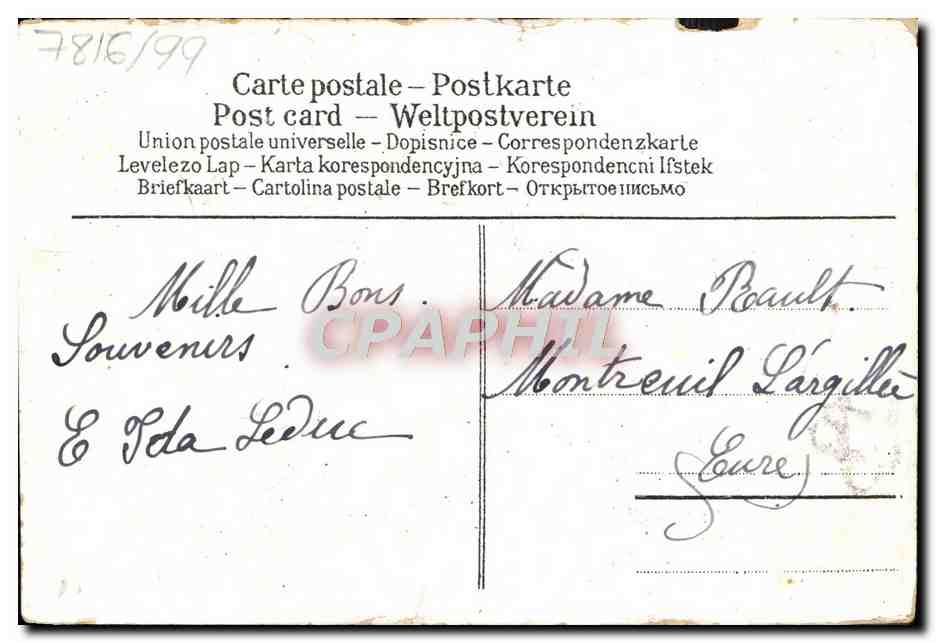 7816/99
Carte postale – Postkarte
Post card — Weltpostverein
Union postale universelle – Dopisnice – Correspondenzkarte
Levelezo Lap – Karta korespondencyjna – Korespondencni lfstek
Briefkaart – Cartolina postale – Brefkort – Открытое письмо
Mille Bons
Souvenirs
E Ida Leduc
Madame Rault.
Montreuil L'argillée
(Eure)
CPAPHIL